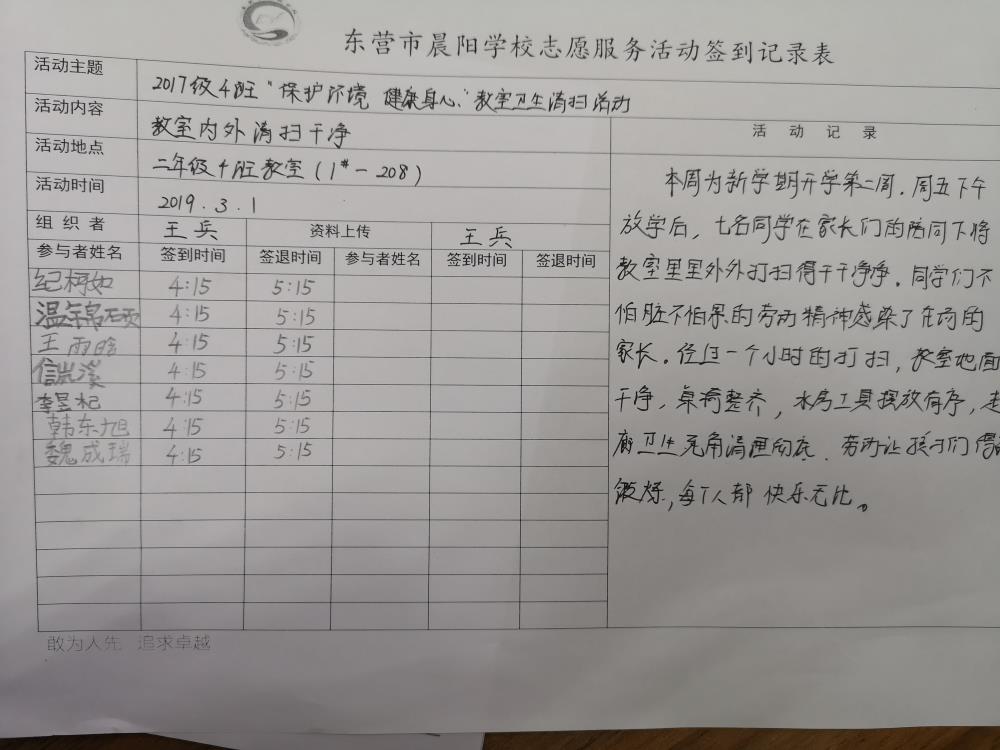 东营市晨阳学校志愿服务活动签到记录表
活动主题 2017级4班“保护环境 健康身心”教室卫生清扫活动
活动内容 教室内外清扫干净
活动地点 二年级4班教室(1#-208)
活动时间 2019.3.1
组织者 王兵 资料上传 王兵
参与者姓名 签到时间 签退时间 参与者姓名 签到时间 签退时间
纪柯如 4:15 5:15
温锦硕 4:15 5:15
王雨晗 4:15 5:15
信 4:15 5:15
李昱杞 4:15 5:15
韩东旭 4:15 5:15
魏成瑞 4:15 5:15
活动记录
本周为新学期开学第二周.周五下午
放学后,七名同学在家长们的陪同下将
教室里里外外打扫得干干净净.同学们不
怕脏不怕累的劳动精神感染了在场的
家长.经过一个小时的打扫,教室地面
干净,桌椅整齐,水房工具摆放有序,走
廊卫生死角清理彻底.劳动让孩子们得到
锻炼,每个人都快乐无比。
敢为人先 追求卓越